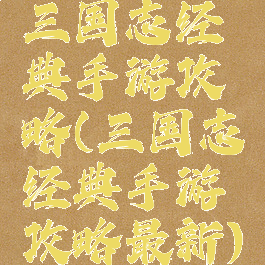 三国志经
典手游攻
略(三国志
经典手游
攻略最新)